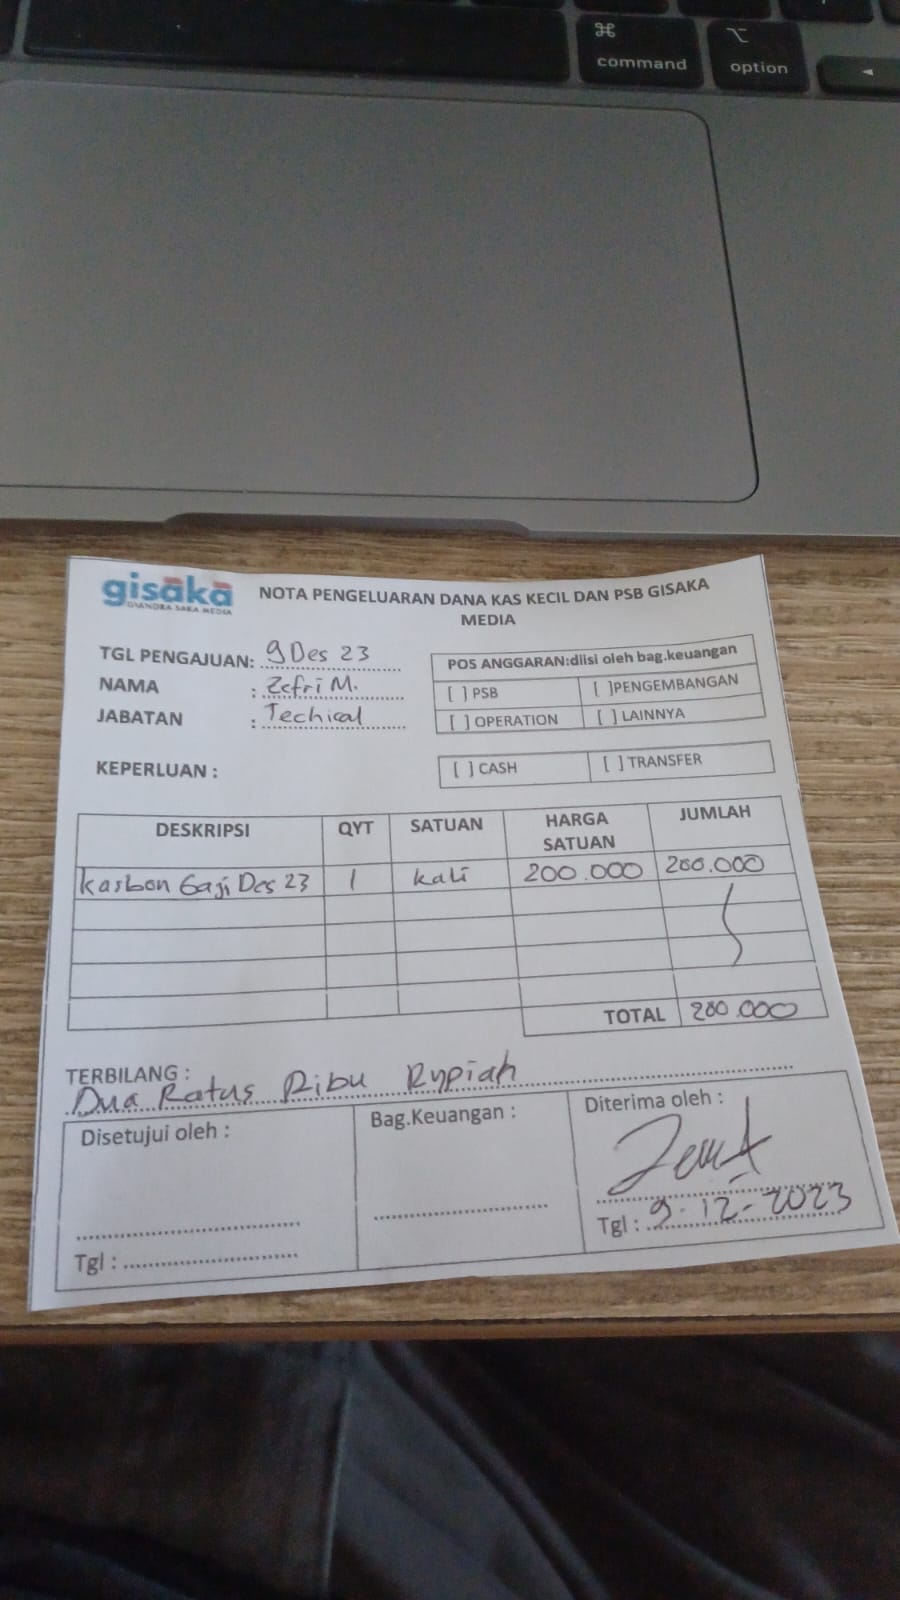 command
option
gisaka
GIANDRA SAKA MEDIA
NOTA PENGELUARAN DANA KAS KECIL DAN PSB GISAKA
MEDIA
TGL PENGAJUAN: 9 Des 23
NAMA : Zefri M.
JABATAN : Techical
POS ANGGARAN:diisi oleh bag.keuangan
[ ] PSB [ ]PENGEMBANGAN
[ ] OPERATION [ ] LAINNYA
KEPERLUAN :
[ ] CASH [ ] TRANSFER
DESKRIPSI QYT SATUAN HARGA SATUAN JUMLAH
Kasbon Gaji Des 23 1 kali 200.000 200.000
TOTAL 200.000
TERBILANG :
Dua Ratus Ribu Rupiah
Disetujui oleh : Bag.Keuangan : Diterima oleh :
Tgl : Tgl : 9-12-2023